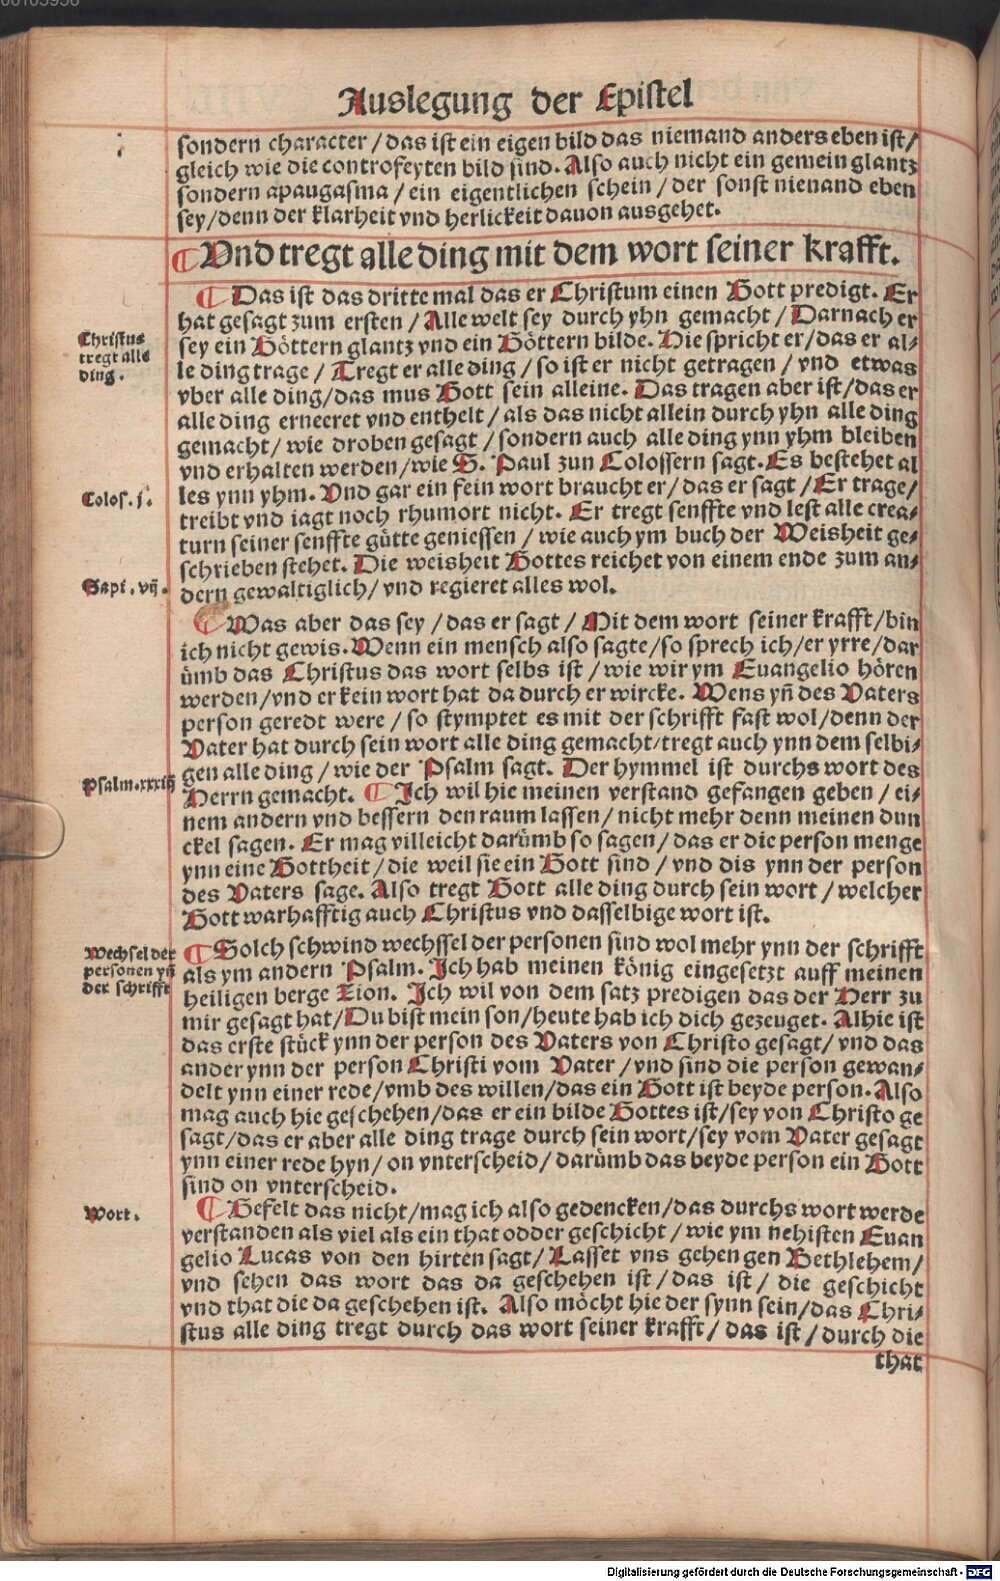 Auslegung der Epistel
sondern character / das ist ein eigen bild das niemand anders eben ist /
gleich wie die controfeyten bild sind. Also auch nicht ein gemein glantz
sondern apaugasma / ein eigentlichen schein / der sonst nienand eben
sey / denn der klarheit vnd herlickeit dauon ausgehet.
¶ Vnd tregt alle ding mit dem wort seiner krafft.
¶ Das ist das dritte mal das er Christum einen Gott predigt. Er
hat gesagt zum ersten / Alle welt sey durch yhn gemacht / Darnach er
sey ein Göttern glantz vnd ein Göttern bilde. Hie spricht er / das er al⸗
le ding trage / Tregt er alle ding / so ist er nicht getragen / vnd etwas
vber alle ding / das mus Gott sein alleine. Das tragen aber ist / das er
alle ding erneeret vnd enthelt / als das nicht allein durch yhn alle ding
gemacht / wie droben gesagt / sondern auch alle ding ynn yhm bleiben
vnd erhalten werden / wie S. Paul zun Colossern sagt. Es bestehet al
les ynn yhm. Vnd gar ein fein wort braucht er / das er sagt / Er trage /
treibt vnd iagt noch rhumort nicht. Er tregt senffte vnd lest alle crea⸗
turn seiner senffte gütte geniessen / wie auch ym buch der Weisheit ge⸗
schrieben stehet. Die weisheit Gottes reichet von einem ende zum an⸗
dern gewaltiglich / vnd regieret alles wol.
Christus
tregt alle
ding.
Colos. j.
Sapi. vij.
¶ Was aber das sey / das er sagt / Mit dem wort seiner krafft / bin
ich nicht gewis. Wenn ein mensch also sagte / so sprech ich / er yrre / dar
ümb das Christus das wort selbs ist / wie wir ym Euangelio hören
werden / vnd er kein wort hat da durch er wircke. Wens yñ des Vaters
person geredt were / so stymptet es mit der schrifft fast wol / denn der
Vater hat durch sein wort alle ding gemacht / tregt auch ynn dem selbi⸗
gen alle ding / wie der Psalm sagt. Der hymmel ist durchs wort des
Herrn gemacht. ¶ Ich wil hie meinen verstand gefangen geben / ei⸗
nem andern vnd bessern den raum lassen / nicht mehr denn meinen dun
ckel sagen. Er mag villeicht darümb so sagen / das er die person menge
ynn eine Gottheit / die weil sie ein Gott sind / vnd dis ynn der person
des Vaters sage. Also tregt Gott alle ding durch sein wort / welcher
Gott warhafftig auch Christus vnd dasselbige wort ist.
Psalm. xxxiij
¶ Solch schwind wechssel der personen sind wol mehr ynn der schrifft
als ym andern Psalm. Ich hab meinen könig eingesetzt auff meinen
heiligen berge Zion. Ich wil von dem satz predigen das der Herr zu
mir gesagt hat / Du bist mein son / heute hab ich dich gezeuget. Alhie ist
das erste stück ynn der person des Vaters von Christo gesagt / vnd das
ander ynn der person Christi vom Vater / vnd sind die person gewan⸗
delt ynn einer rede / vmb des willen / das ein Gott ist beyde person. Also
mag auch hie geschehen / das er ein bilde Gottes ist / sey von Christo ge
sagt / das er aber alle ding trage durch sein wort / sey vom Vater gesagt
ynn einer rede hyn / on vnterscheid / darümb das beyde person ein Gott
sind on vnterscheid.
Wechsel der
personen yñ
der schrifft
¶ Gefelt das nicht / mag ich also gedencken / das durchs wort werde
verstanden als viel als ein that odder geschicht / wie ym nehisten Euan
gelio Lucas von den hirten sagt / Lasset vns gehen gen Bethlehem /
vnd sehen das wort das da geschehen ist / das ist / die geschicht
vnd that die da geschehen ist. Also möcht hie der synn sein / das Chri⸗
stus alle ding tregt durch das wort seiner krafft / das ist / durch die
that
Wort.
Digitalisierung gefördert durch die Deutsche Forschungsgemeinschaft - DFG